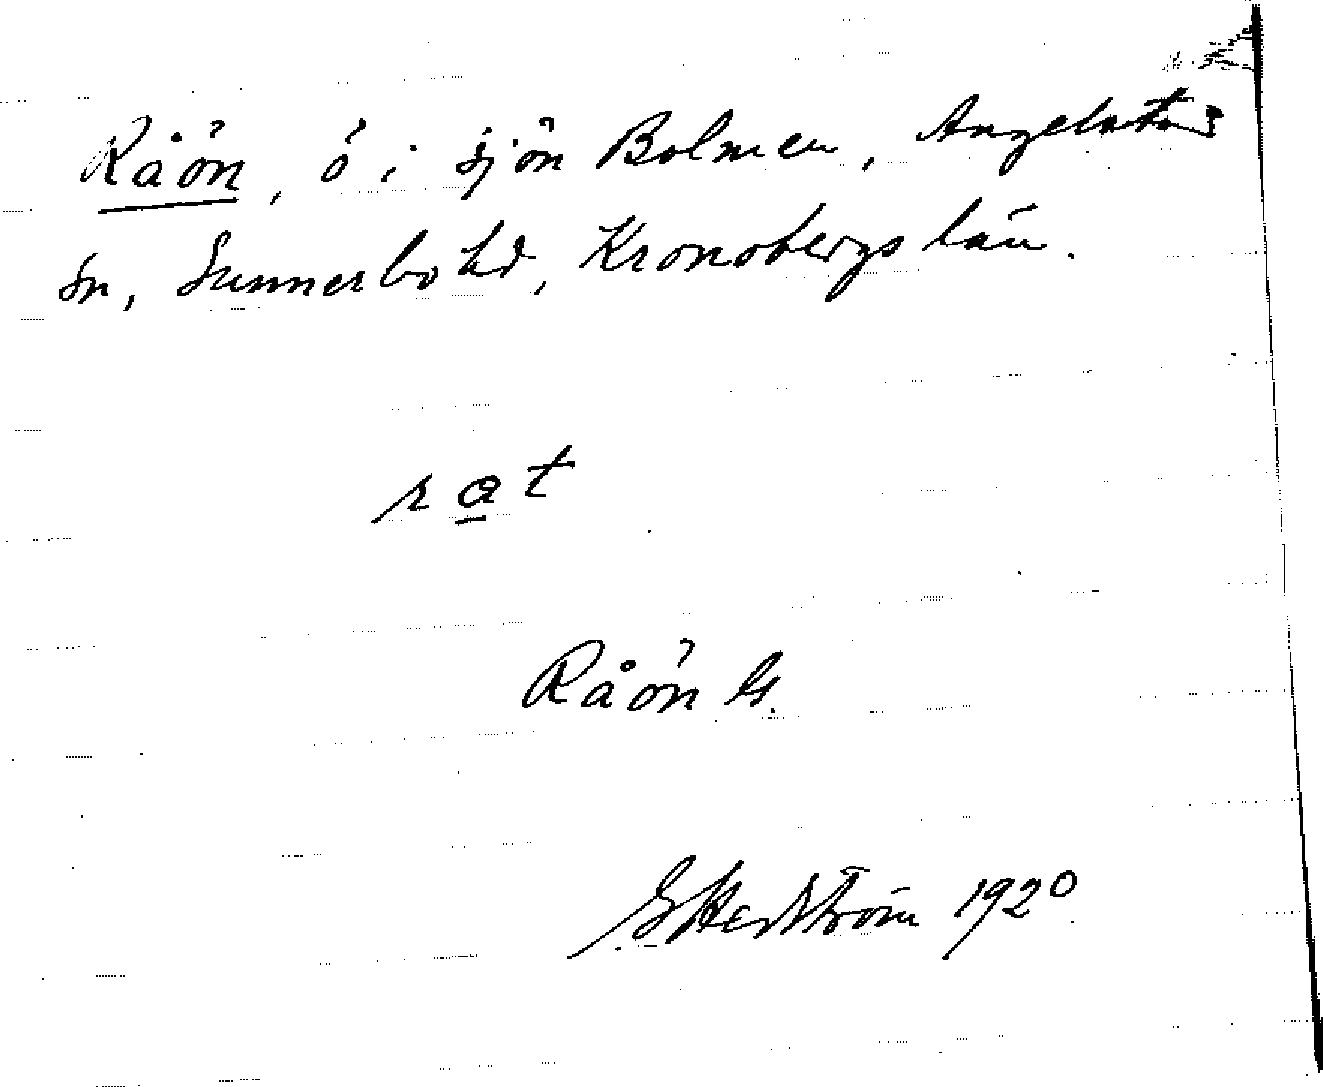 Råön, ö i sjön Bolmen, Angelstads
sn, Sunnerbo hd, Kronobergs län.
rat
Råön G.
G Hedström 1920